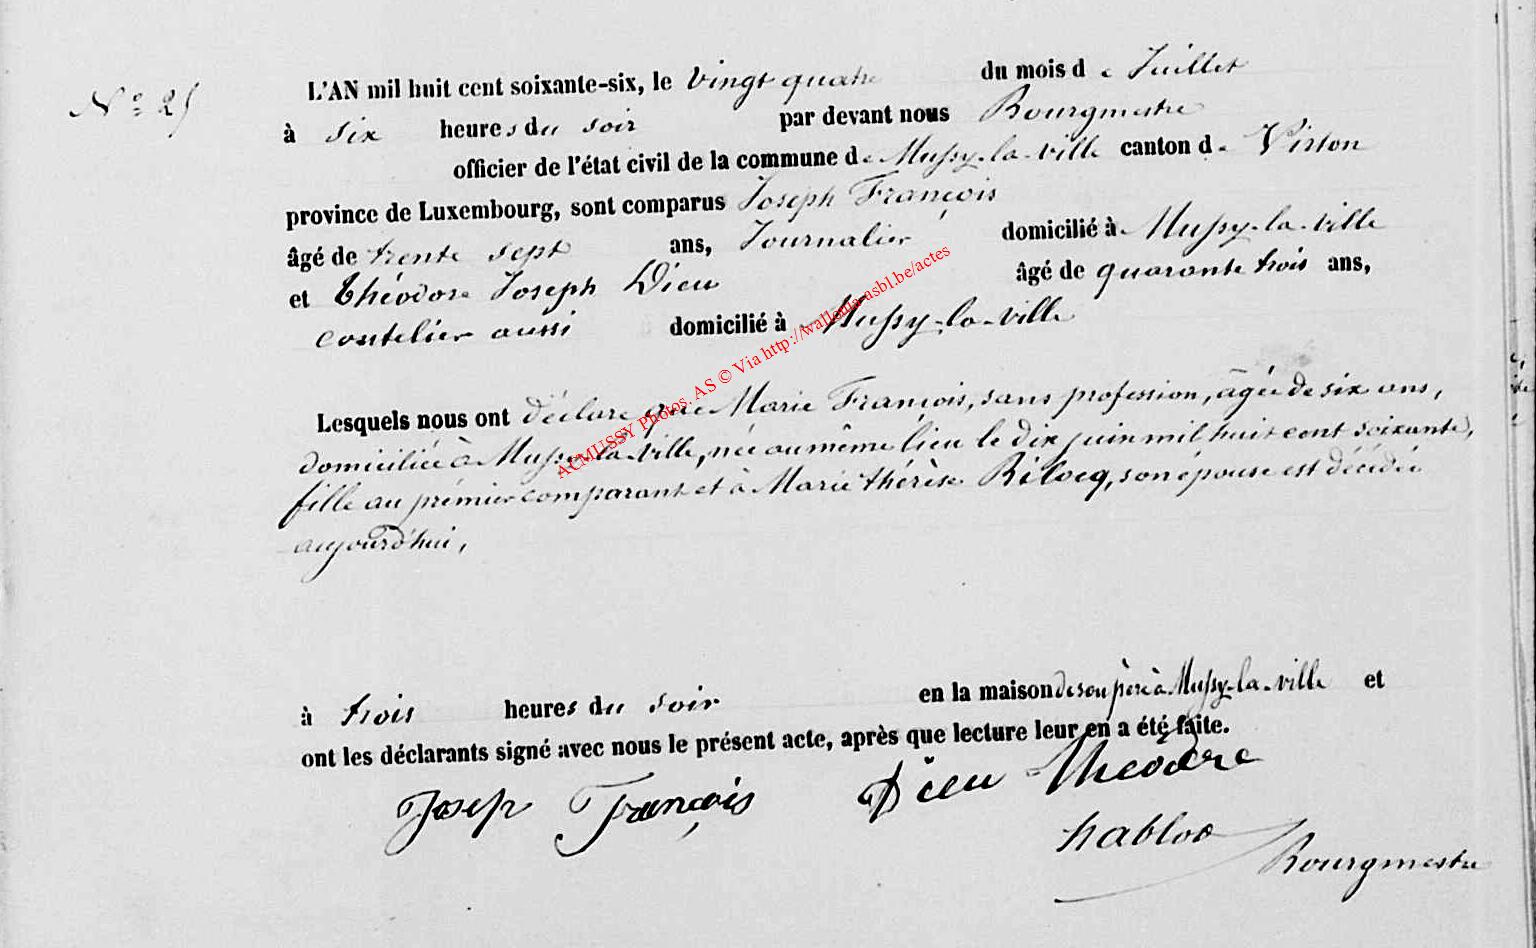 N° 25
L'AN mil huit cent soixante-six, le vingt quatre du mois de Juillet
à six heures du soir par devant nous Bourgmestre
officier de l'état civil de la commune de Mussy-la-ville canton de Virton
province de Luxembourg, sont comparus Joseph François
âgé de trente sept ans, Journalier domicilié à Mussy-la-ville
et Théodore Joseph Dieu âgé de quarante trois ans,
coutelier aussi domicilié à Mussy-la-ville
Lesquels nous ont déclaré que Marie François, sans profession, âgée de six ans,
domiciliée à Mussy-la-ville, née au même lieu le dix juin mil huit cent soixante,
fille au prémier comparant et à Marie thérèse Bilocq, son épouse est décédée
aujourd'hui,
à trois heures du soir en la maison de son père à Mussy-la-ville et
ont les déclarants signé avec nous le présent acte, après que lecture leur en a été faite.
Josep François Dieu Theodore
habloo
Bourgmestre
ACMUSSY Photos. AS © Via http://wallonia-asbl.be/actes